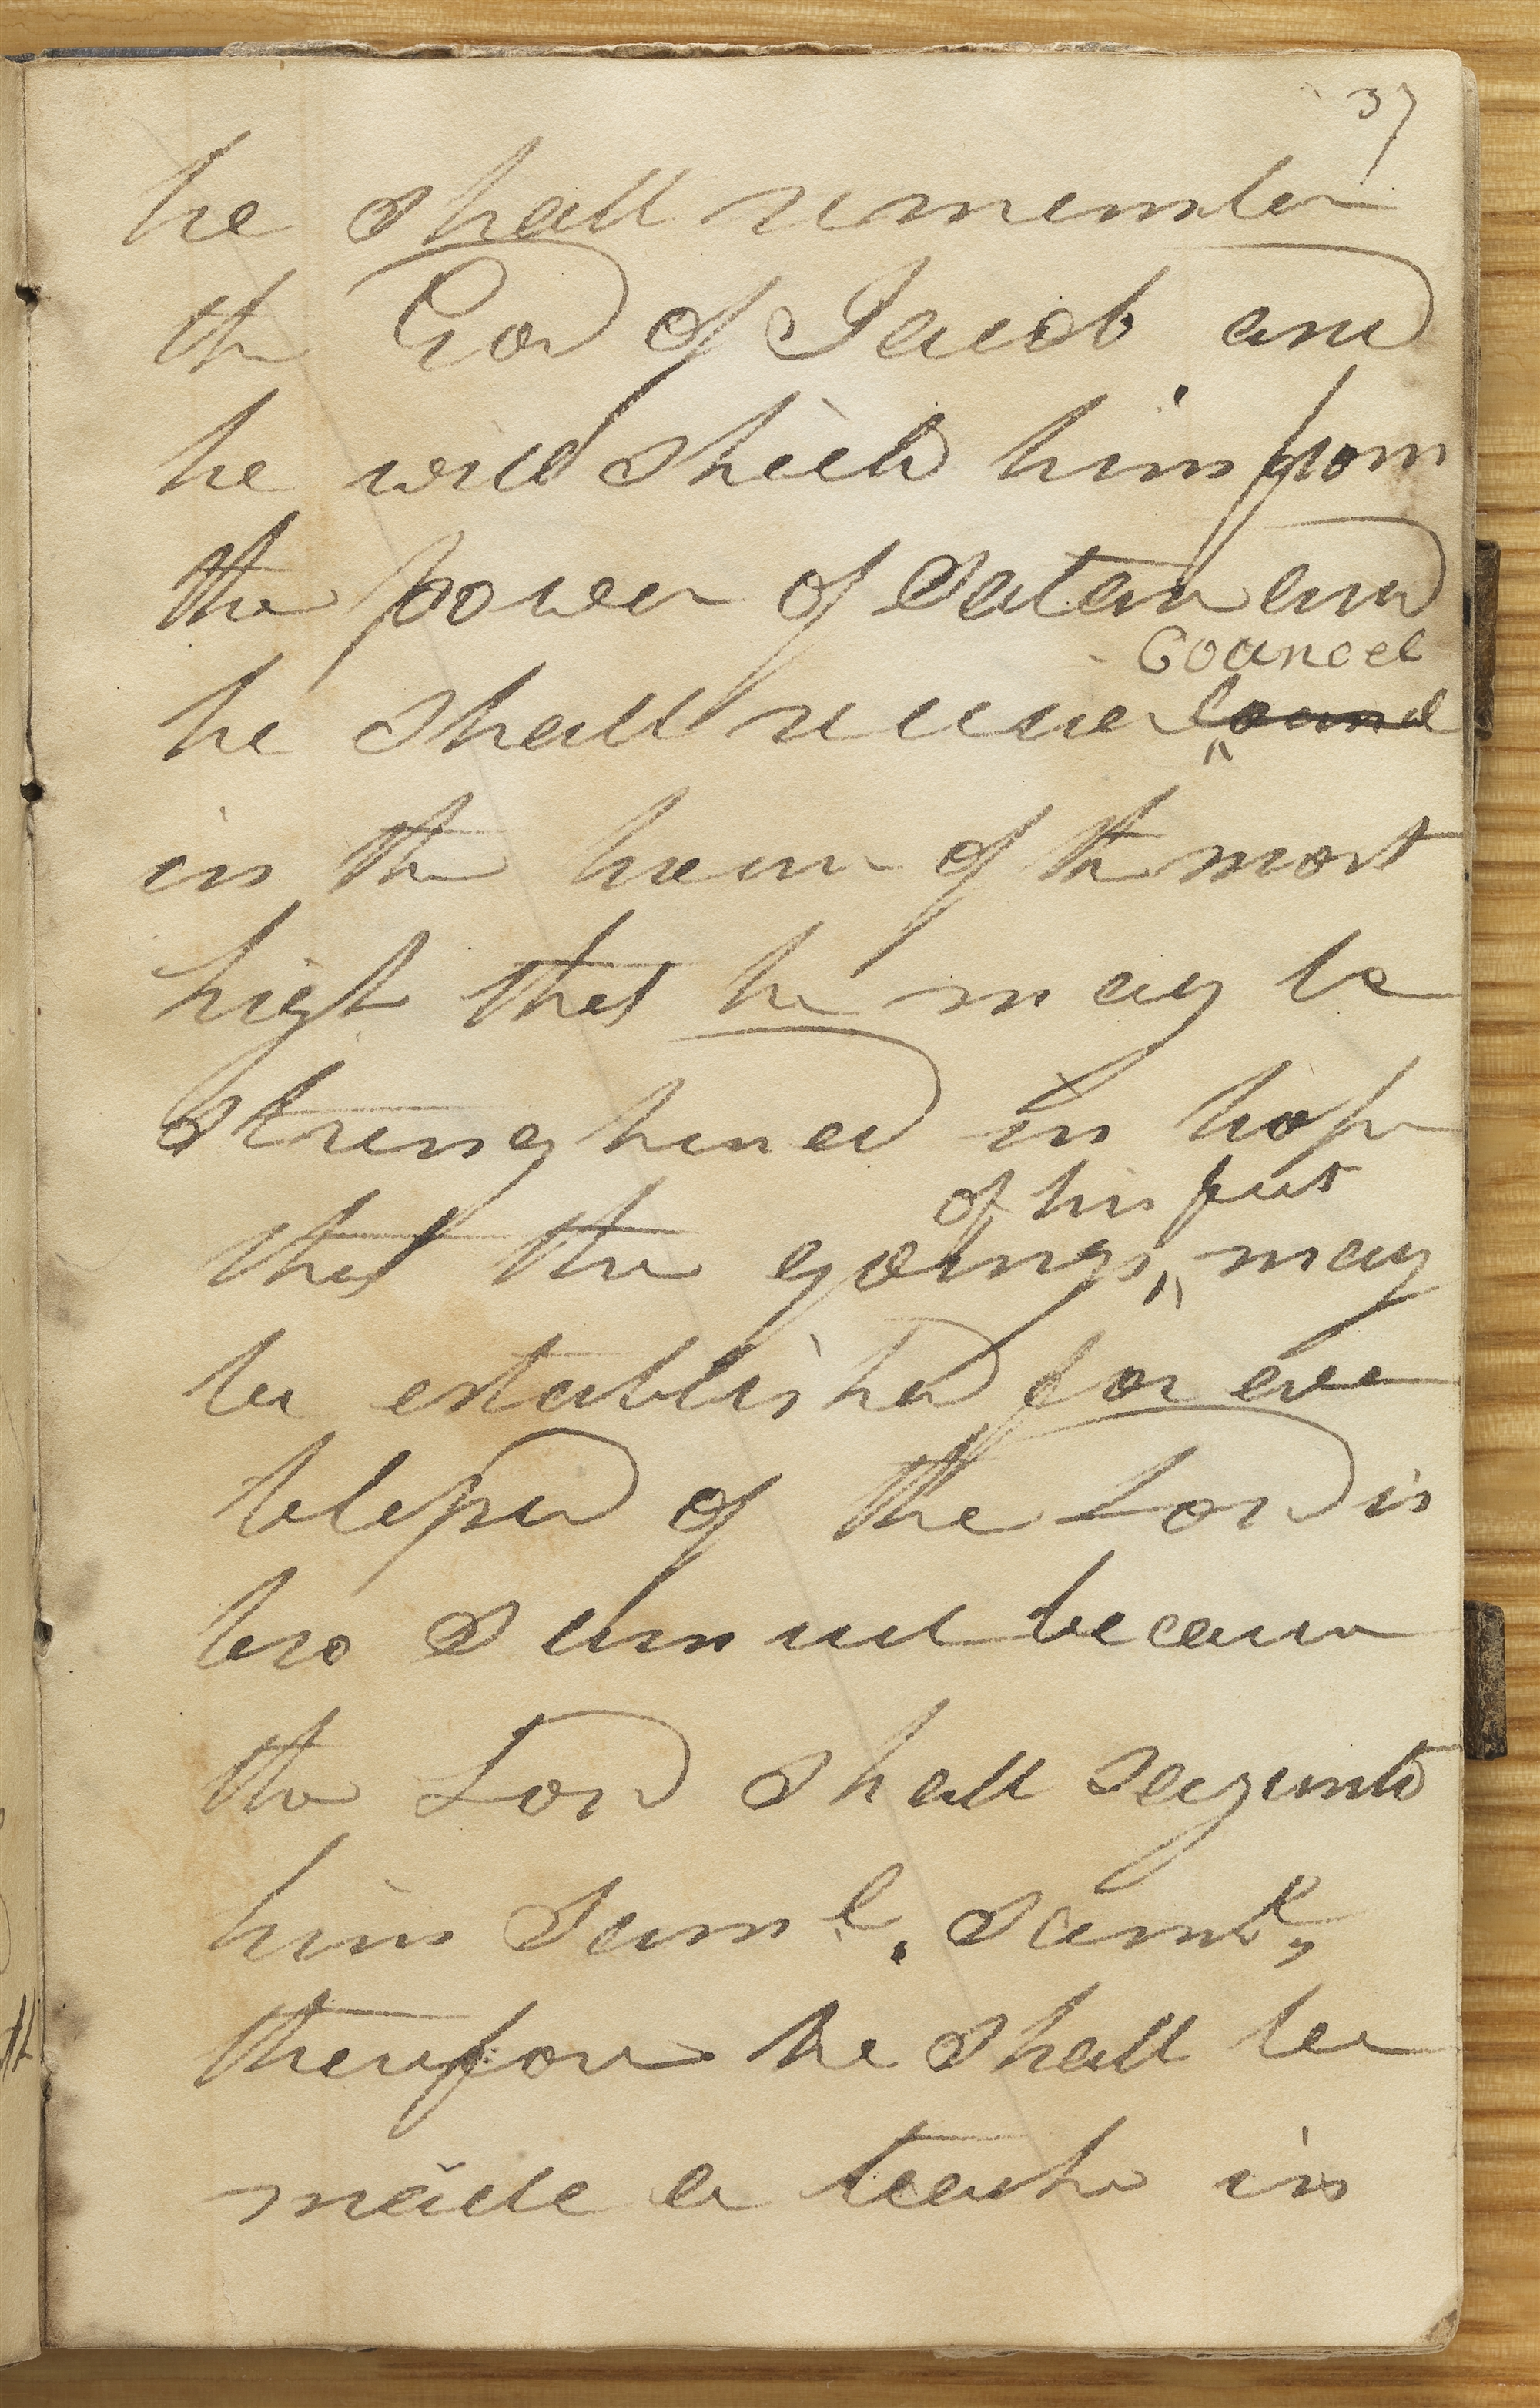 37
he shall remember
the God of Jacob and
he will shield him from
the power of Satan and
Councel
he shall receive
in the house of the most
high that he may be
strenghened in hope
of his feet
that the goings may
be established for ever
blessed of the Lord is
bro Samuel because
the Lord shall say unto
him Saml, Saml,
therefore he shall be
made a teacher in